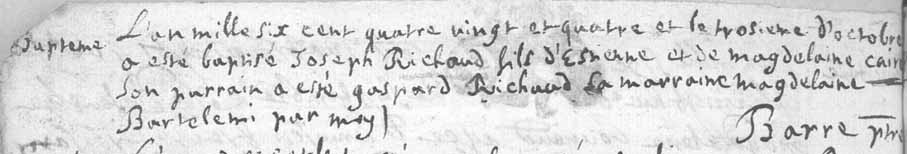 Bapteme L'an mille six cent quatre vingt et quatre et le trosieme d'octobre
a esté baptisé Joseph Richaud fils d'Estienne et de magdelaine caire
son parrain a esté gaspard Richaud La marraine magdelaine
Bartelemi par moy
Barre ptre